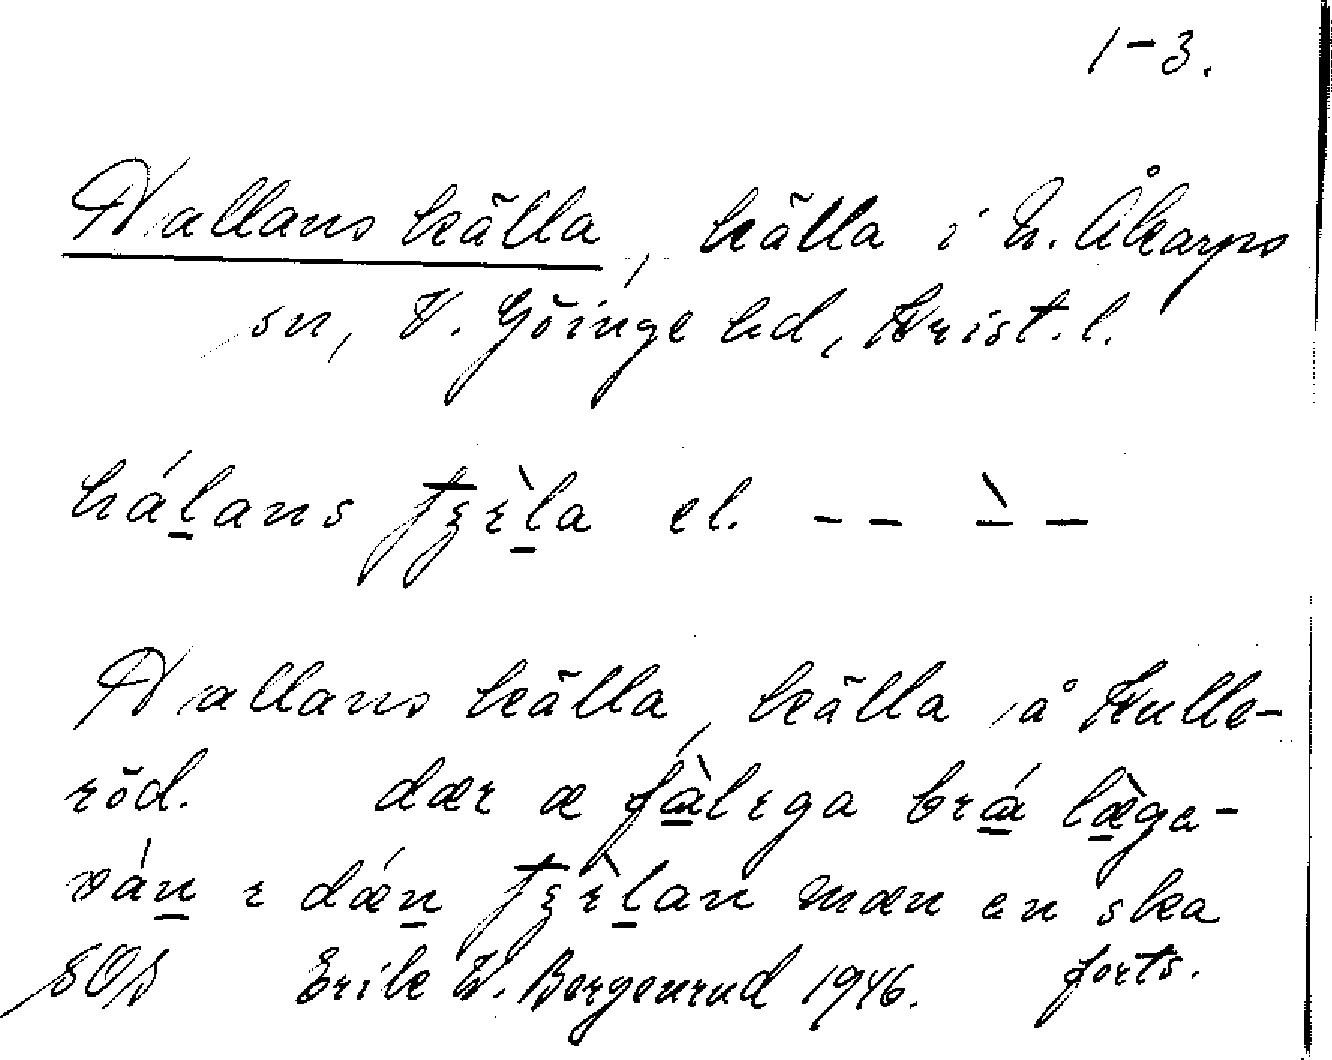 1-3.
Hallans källa, källa i N. Åkarps
sn, V. Göinge hd, Krist. l.
hál̲ans ƫʒɛ̀l̲a el. – – ˋ– –
Hallans källa, källa å Hulle-
röd. dær æ fà̲lɛga brá̲ læ̲̀ga-
ván̲ ɛ dǽn̲ ƫʒɛ̀l̲an mæn en ska
SOD Erik W. Borgenrud 1946. forts.